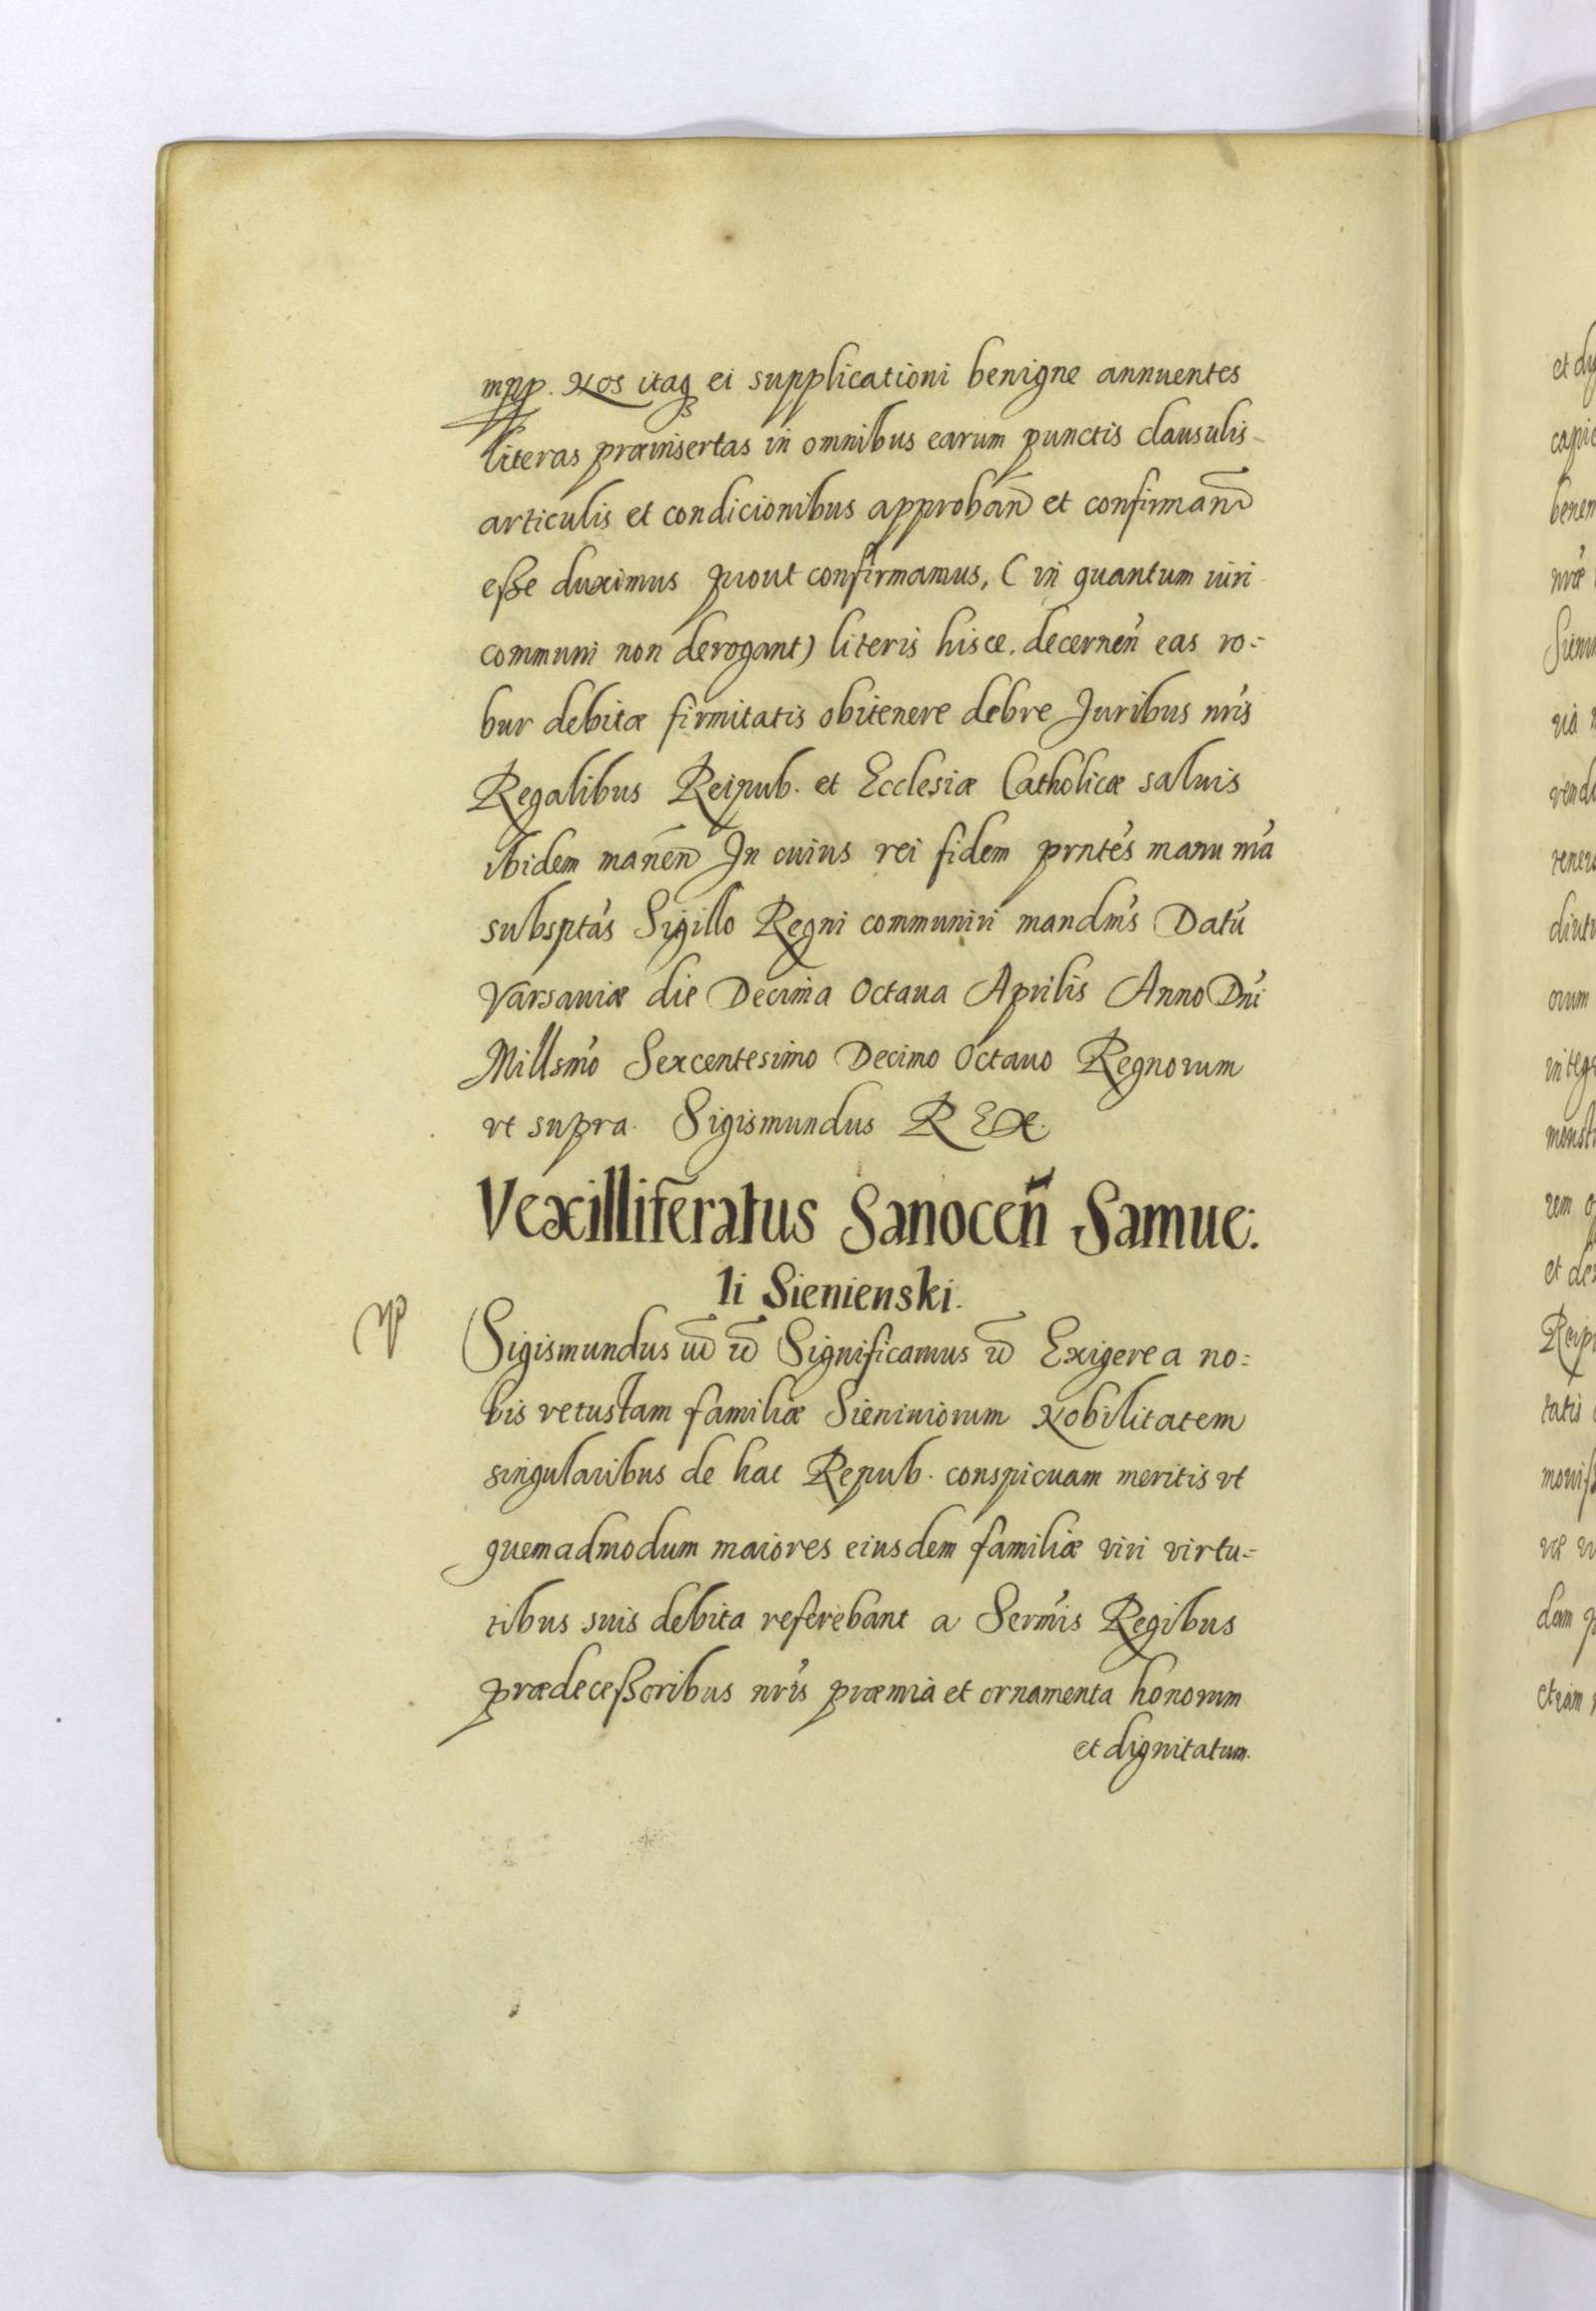 mpp. Nos itaq ei supplicationi benigne annuentes
literas præinsertas in omnibus earum punctis clausulis
articulis et condicionibus approban̄ et confirman̄
eſse duximus prout confirmamus, ( in quantum iuri
communi non derogant) literis hisce. decernen̄ eas ro=
bur debitæ firmitatis obitenere debre Juribus nr̄is
Regalibus Reipub. et Ecclesiæ Catholicæ saluis
ibidem manen̄ In cuius rei fidem prntēs manu nr̄a
subsptās Sigillo Regni communiri mandm̄s Datū
Varsauiæ die Decima Octaua Aprilis Anno Dn̄i
Millsm̄o Sexcentesimo Decimo Octauo Regnorum
vt supra. Sigismundus REX.
Vexilliferatus Sanocen̄ Samue:
li Sienienski.
Sigismundus ut̄ ut̄ Significamus ut̄ Exigere a no=
bis vetustam familiæ Sieniniorum Nobilitatem
singularibus de hac Repub. conspicuam meritis vt
quemadmodum maiores eiusdem familiæ viri virtu=
tibus suis debita referebant a Serm̄is Regibus
prædeceſsoribus nr̄is præmia et ornamenta honorum
et dignitatum.